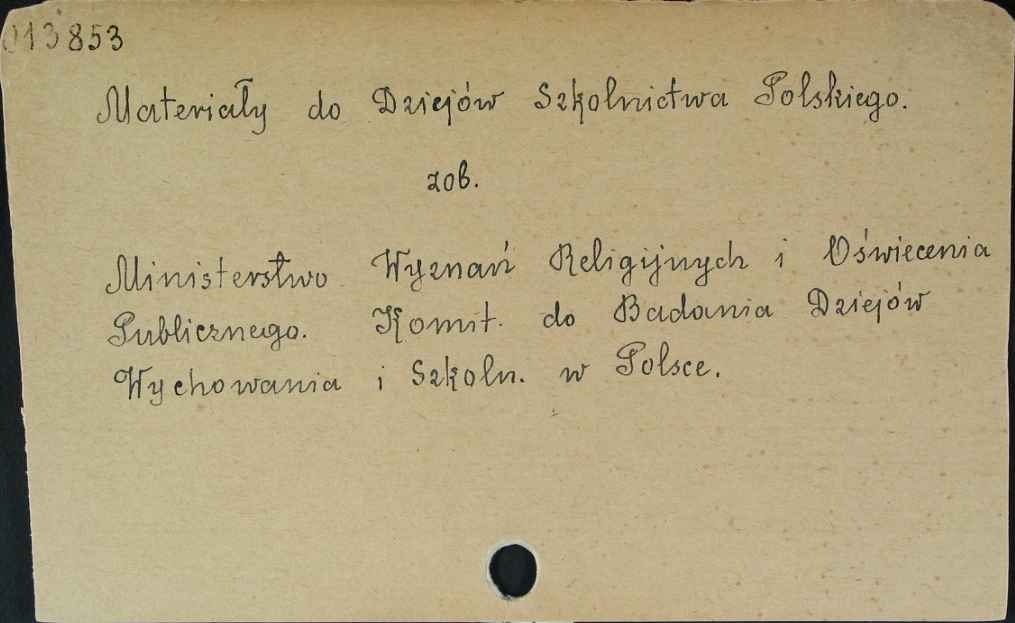 013853
Materiały do Dziejów Szkolnictwa Polskiego.
zob.
Ministerstwo Wyznań Religijnych i Oświecenia
Publicznego. Komit. do Badania Dziejów
Wychowania i Szkoln. w Polsce.